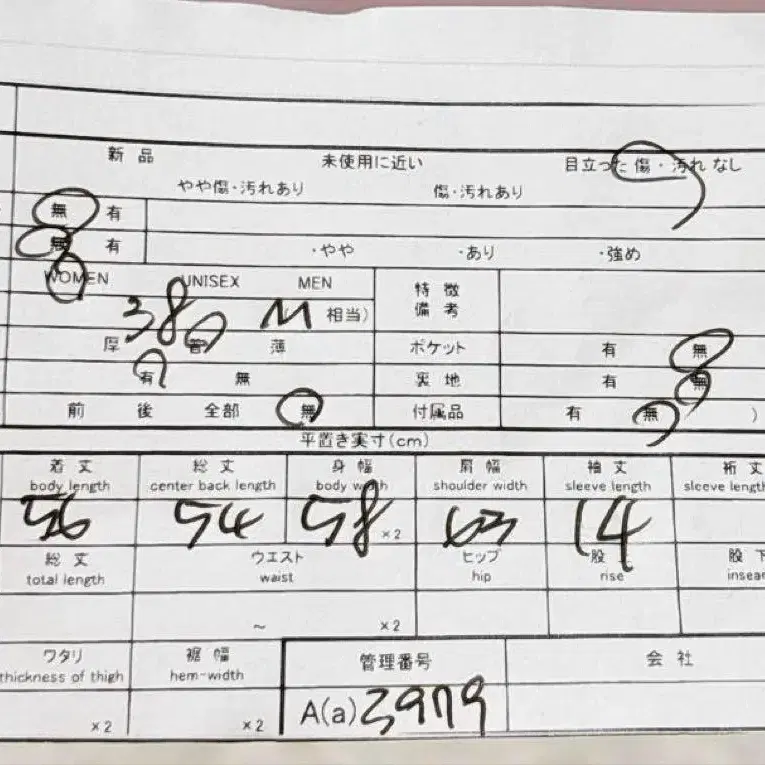 新品 未使用に近い 目立った傷・汚れなし
やや傷・汚れあり 傷・汚れあり
無 有
無 有 ・やや ・あり ・強め
WOMEN UNISEX MEN 特徴
備考
38 M 相当)
厚 普 薄 ポケット 有 無
有 無 裏地 有 無
前 後 全部 無 付属品 有 無 )
平置き実寸(cm)
着丈 総丈 身幅 肩幅 袖丈 裄丈
body length center back length body width shoulder width sleeve length sleeve length
56 54 58 ×2 63 14
総丈 ウエスト ヒップ 股 股下
total length waist hip rise
~ ×2
ワタリ 裾幅 管理番号 会社
thickness of thigh hem-width
×2 ×2 A(a)3979